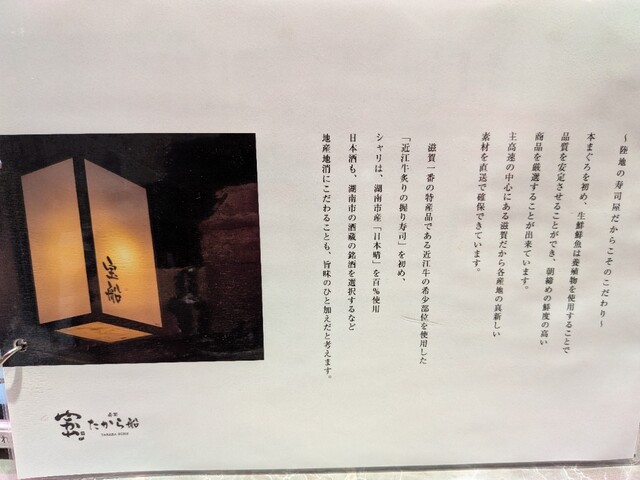 ～陸地の寿司屋だからこそのこだわり～
本まぐろを初め、生鮮鮮魚は養殖物を使用することで
品質を安定させることができ、朝締めの鮮度の高い
商品を厳選することが出来ています。
主高速の中心にある滋賀だから各産地の真新しい
素材を直送で確保できています。
滋賀一番の特産品である近江牛の希少部位を使用した
「近江牛炙りの握り寿司」を初め、
シャリは、湖南市産「日本晴」を百%使用
日本酒も、湖南市の酒蔵の銘酒を選択するなど
地産地消にこだわることも、旨味のひと加えだと考えます。
宝船
たから船